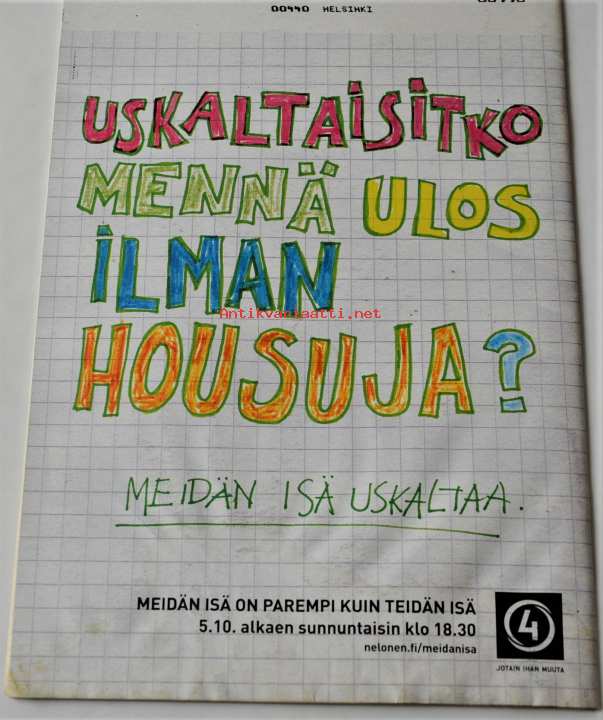 00440 HELSINKI
USKALTAISITKO
MENNÄ ULOS
İLMAN
Antikvariaatti.net
HOUSUJA?
MEIDÄN ISÄ USKALTAA.
MEIDÄN ISÄ ON PAREMPI KUIN TEIDÄN ISÄ
5.10. alkaen sunnuntaisin klo 18.30
nelonen.fi/meidanisa
4
JOTAIN IHAN MUUTA